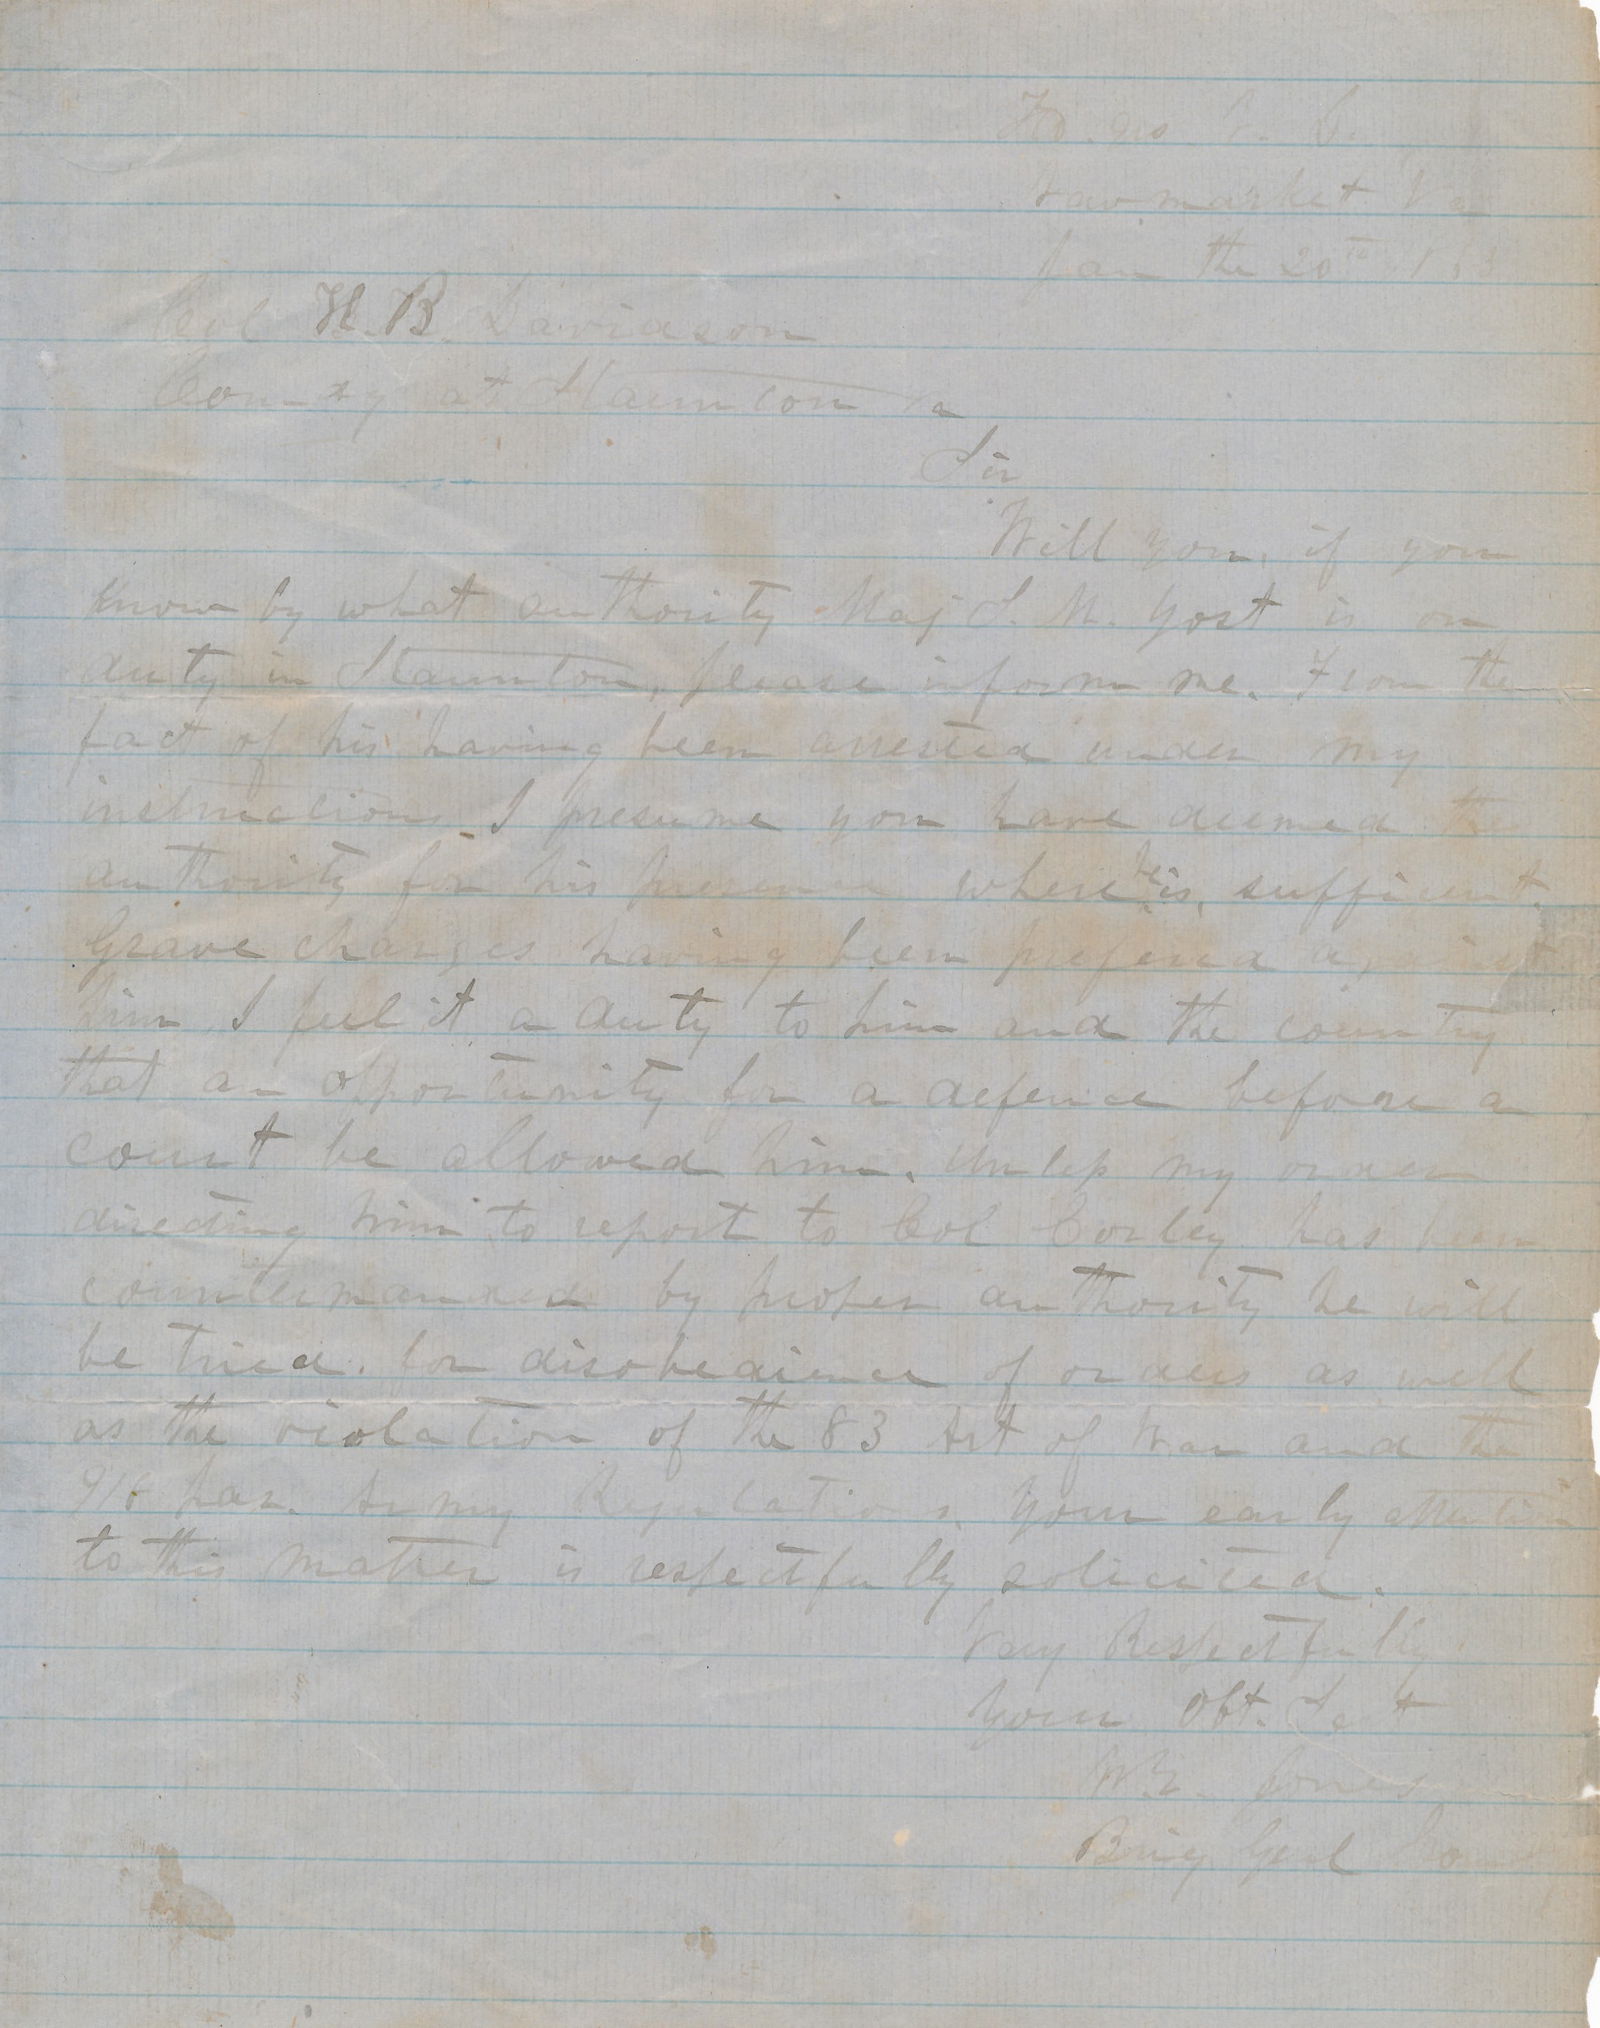 Hd. qrs V. D.
New market Va
Jan the 20th 1863
Col H. B. Davidson
Com'dg at Staunton Va
Sir
Will you, if you
know by what authority Maj S. M. Yost is on
duty in Staunton, please inform me. From the
fact of his having been arrested under my
instructions I presume you have deemed the
authority for his presence where he is, sufficient.
Grave charges having been prefered against
him, I feel it a duty to him and the country
that an opportunity for a defence before a
court be allowed him. Unless my order
directing him to report to Col Corley has been
countermanded by proper authority he will
be tried for disobedience of orders as well
as the violation of the 83 Art of War and the
918 par. Army Regulations. Your early attention
to this matter is respectfully solicited.
Very Respectfully
Your Obt. Sevt
W. E. Jones
Brig. Genl